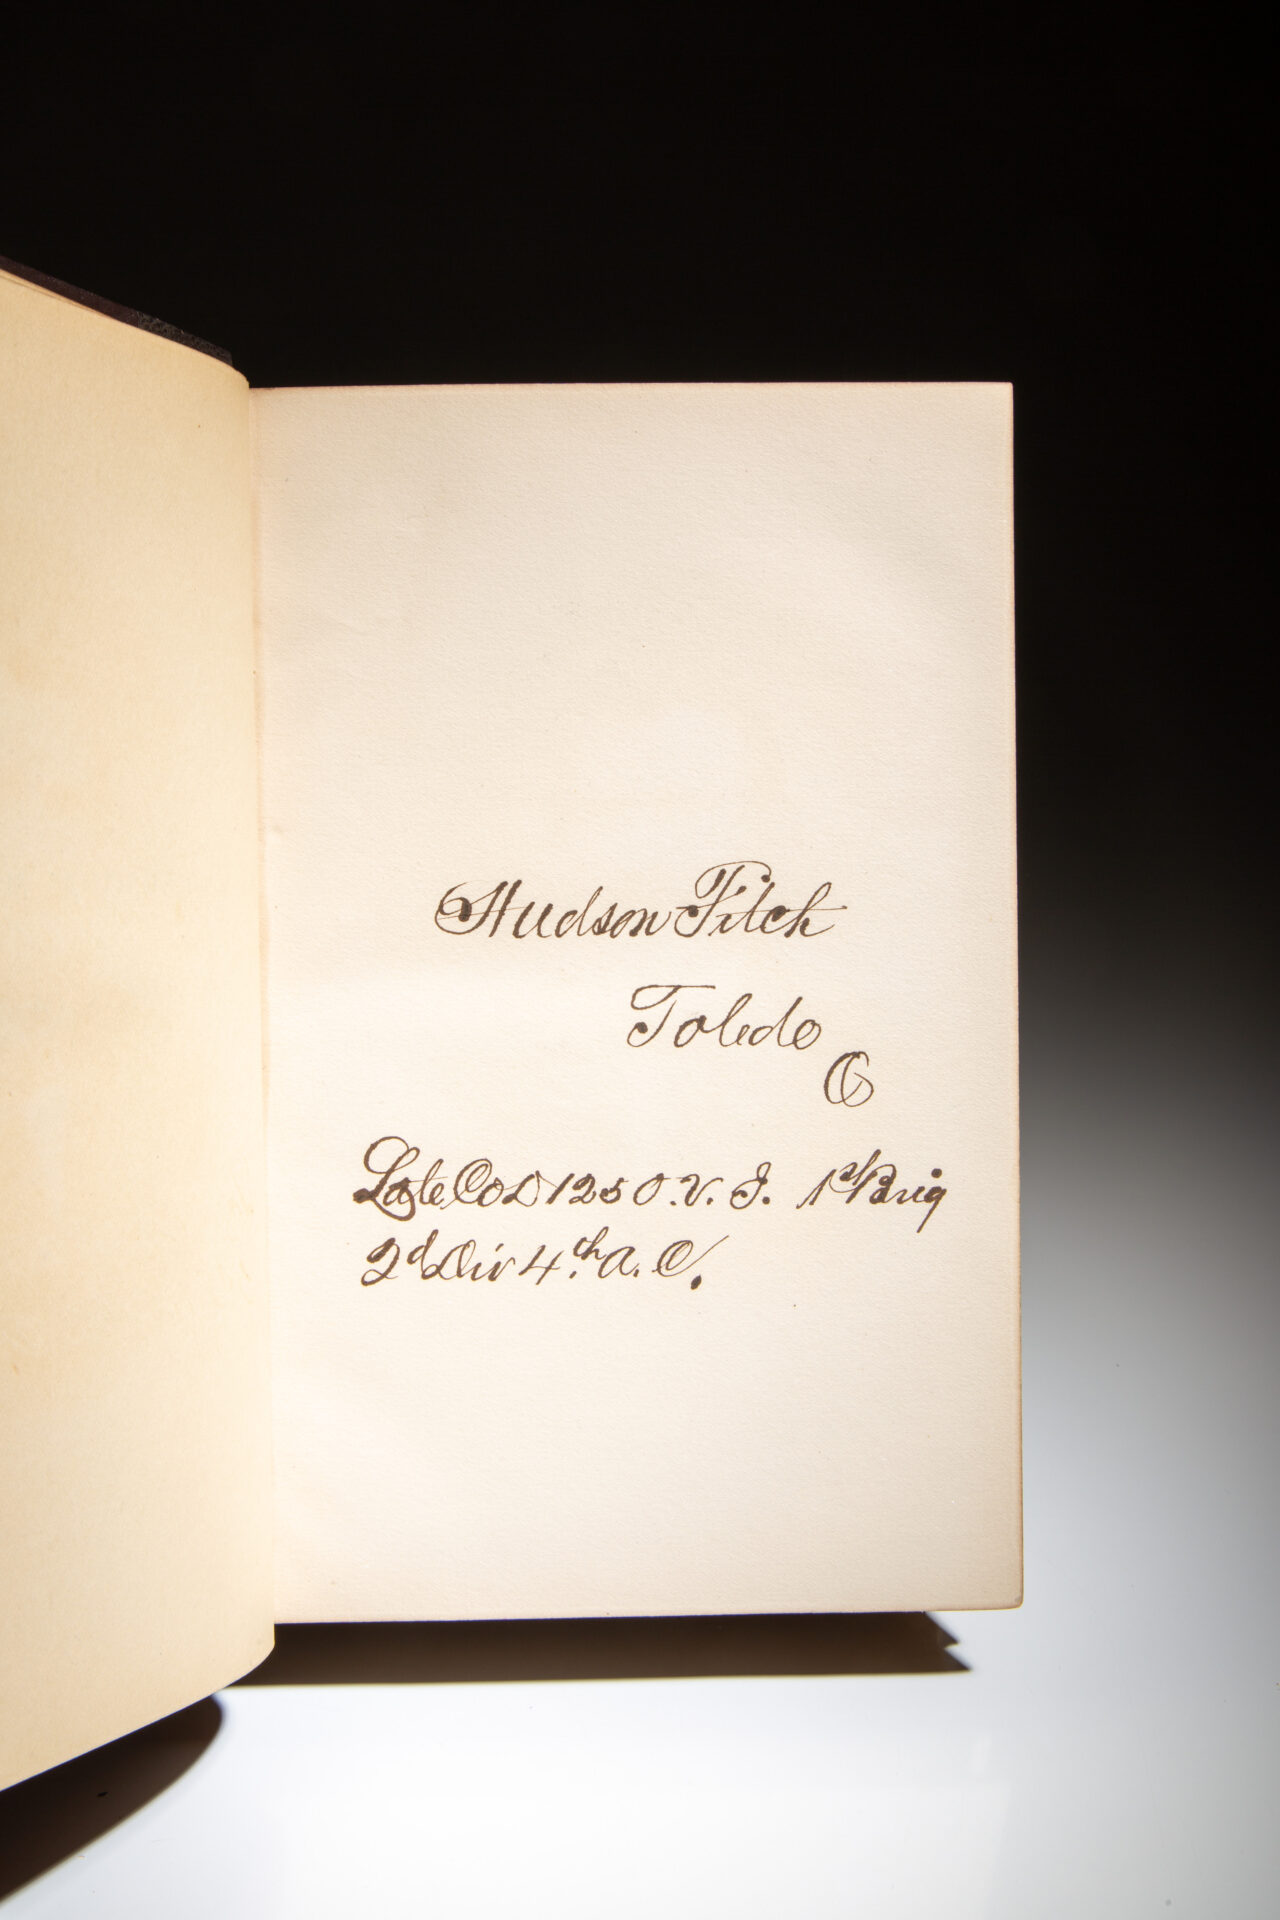 Hudson Fitch
Toledo
O
Late Co D 125 O.V.I. 1st Brig
2d Div 4th A.C.